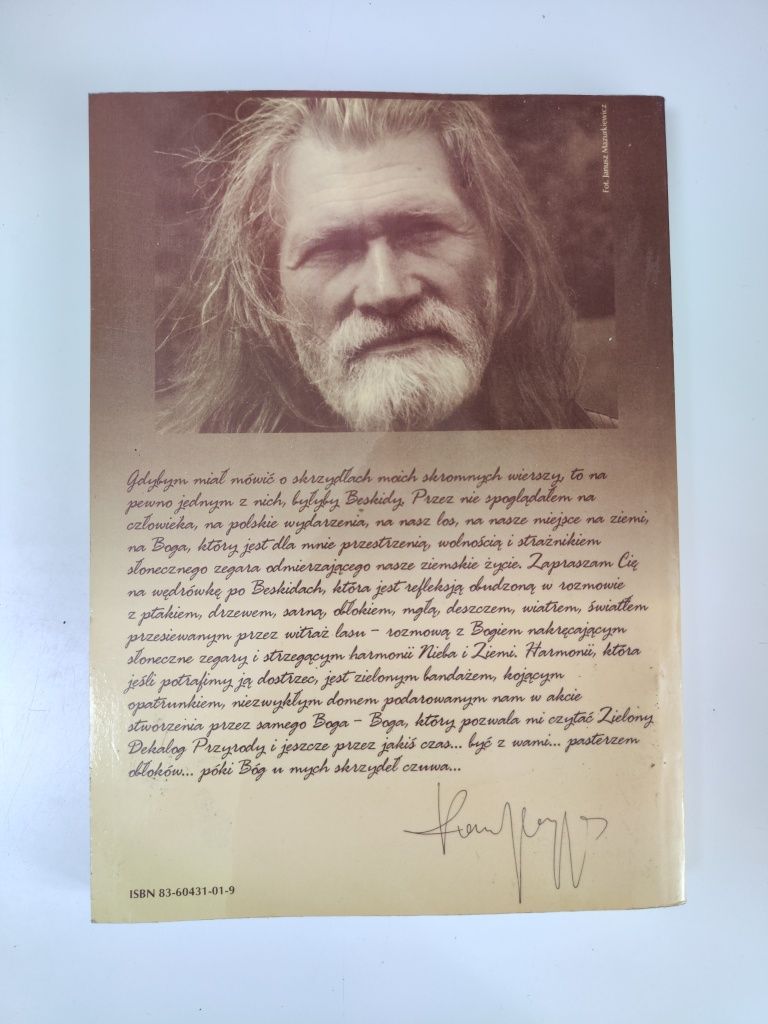 Fot. Janusz Mazurkiewicz
Gdybym miał mówić o skrzydłach moich skromnych wierszy, to na
pewno jednym z nich, byłyby Beskidy. Przez nie spoglądałem na
człowieka, na polskie wydarzenia, na nasz los, na nasze miejsce na ziemi,
na Boga, który jest dla mnie przestrzenią, wolnością i strażnikiem
słonecznego zegara odmierzającego nasze ziemskie życie. Zapraszam Cię
na wędrówkę po Beskidach, która jest refleksją obudzoną w rozmowie
z ptakiem, drzewem, sarną, obłokiem, mgłą, deszczem, wiatrem, światłem
przesiewanym przez witraż lasu – rozmową z Bogiem nakręcającym
słoneczne zegary i strzegącym harmonii Nieba i Ziemi. Harmonii, która
jeśli potrafimy ją dostrzec, jest zielonym bandażem, kojącym
opatrunkiem, niezwykłym domem podarowanym nam w akcie
stworzenia przez samego Boga – Boga, który pozwala mi czytać Zielony
Dekalog Przyrody i jeszcze przez jakiś czas... być z wami... pasterzem
obłoków... póki Bóg u mych skrzydeł czuwa...
ISBN 83-60431-01-9